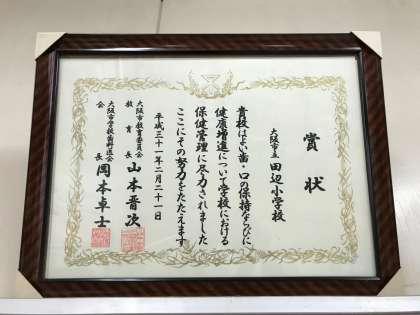 賞状
大阪市立 田辺小学校
貴校はよい歯・口の保持ならびに
健康増進について学校における
保健管理に尽力されました
ここにその努力をたたえます
平成三十一年二月二十一日
大阪市教育委員会
教育長 山本晋次
大阪市学校歯科医会
会長 岡本卓士